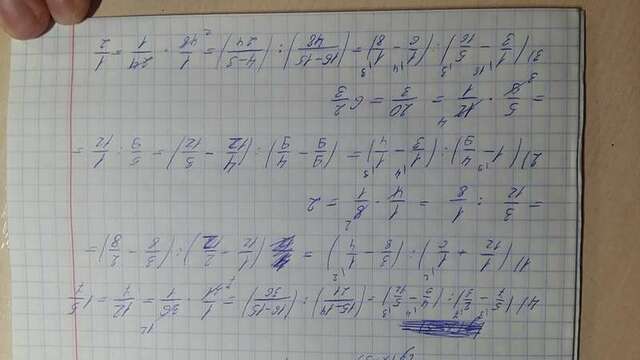 4) (5/7 - 2/3) : (4/9 - 5/12) = (15-14/21) : (16-15/36) = 1/21 · 36/1 = 12/7 = 1 5/7
1) (1/12 + 1/6) : (3/8 - 1/4) = (1/12 + 2/12) : (3/8 - 2/8) =
= 3/12 : 1/8 = 1/4 · 8/1 = 2
2) (1 - 4/9) : (1/3 - 1/4) = (9/9 - 4/9) : (4/12 - 3/12) = 5/9 : 1/12 =
= 5/9 · 12/1 = 20/3 = 6 2/3
3) (1/3 - 5/16) : (1/6 - 1/8) = (16-15/48) : (4-3/24) = 1/48 · 24/1 = 1/2